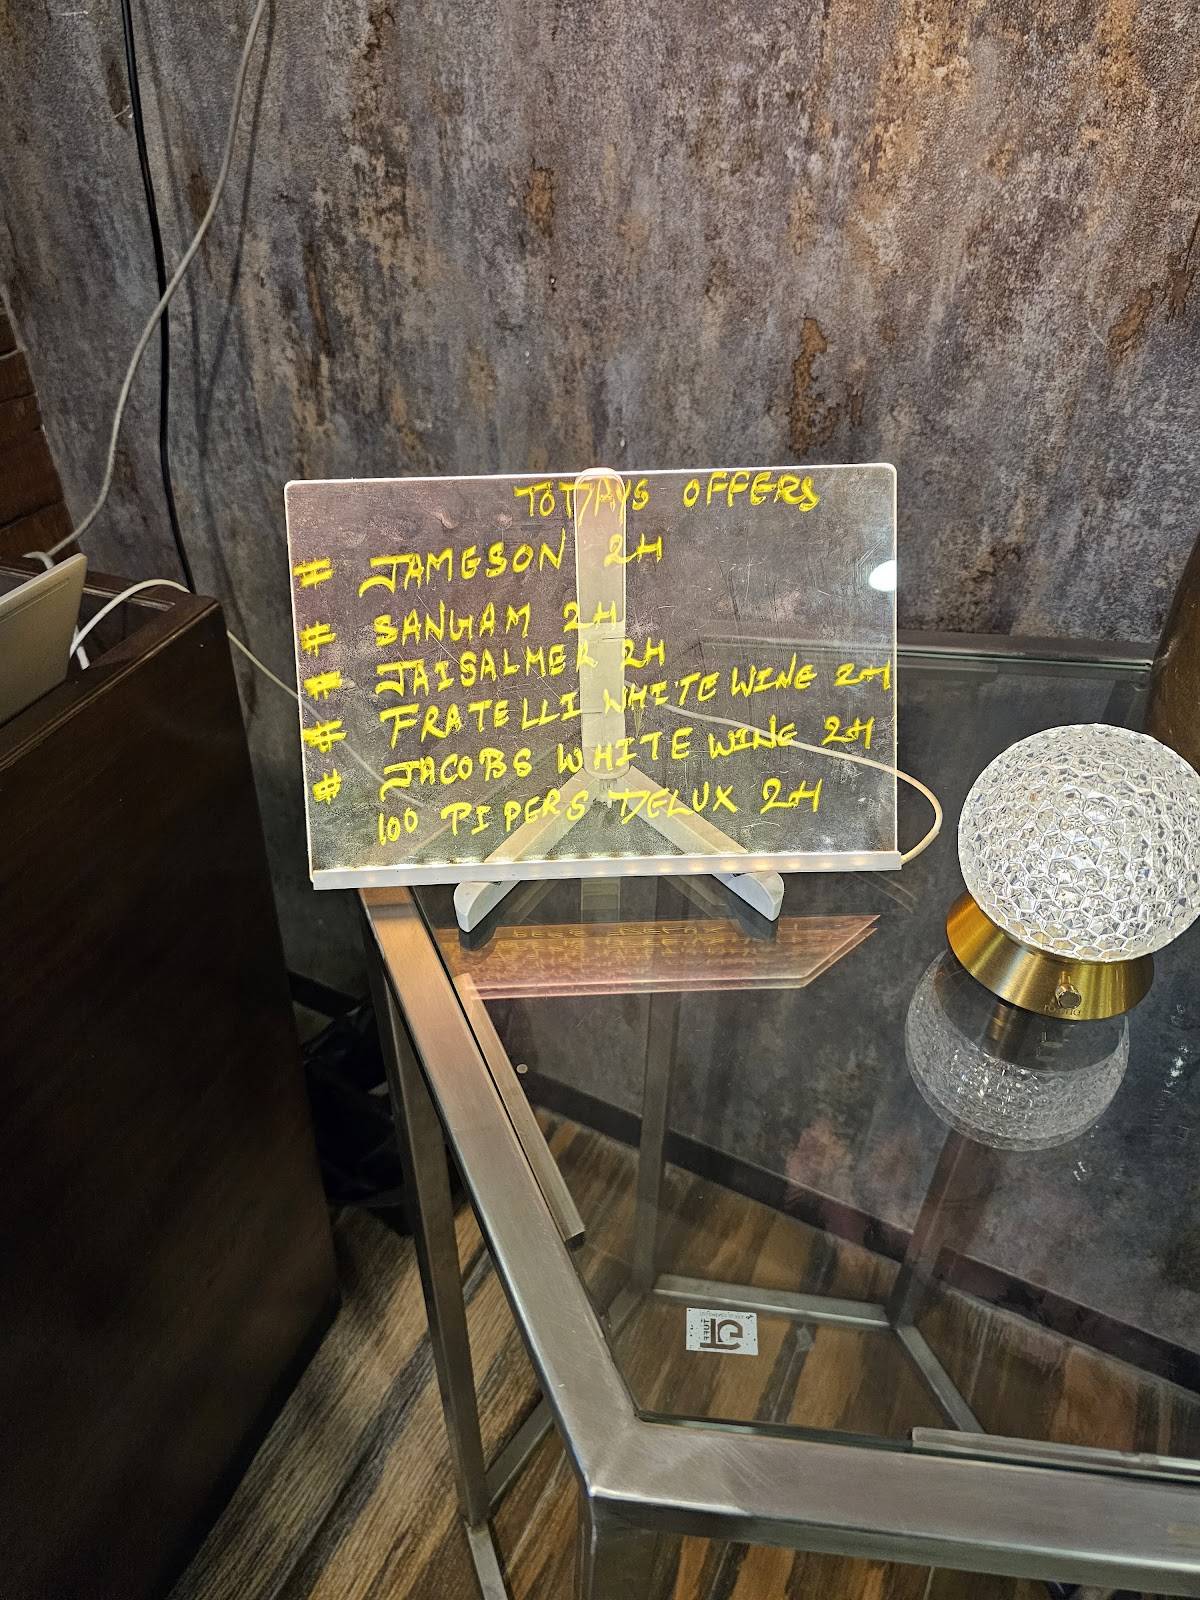 TODAYS OFFERS
# JAMESON 2H
# SANGAM 2H
# JAISALMER 2H
# FRATELLI WHITE WINE 2H
# JACOBS WHITE WINE 2H
100 PIPERS DELUX 2H